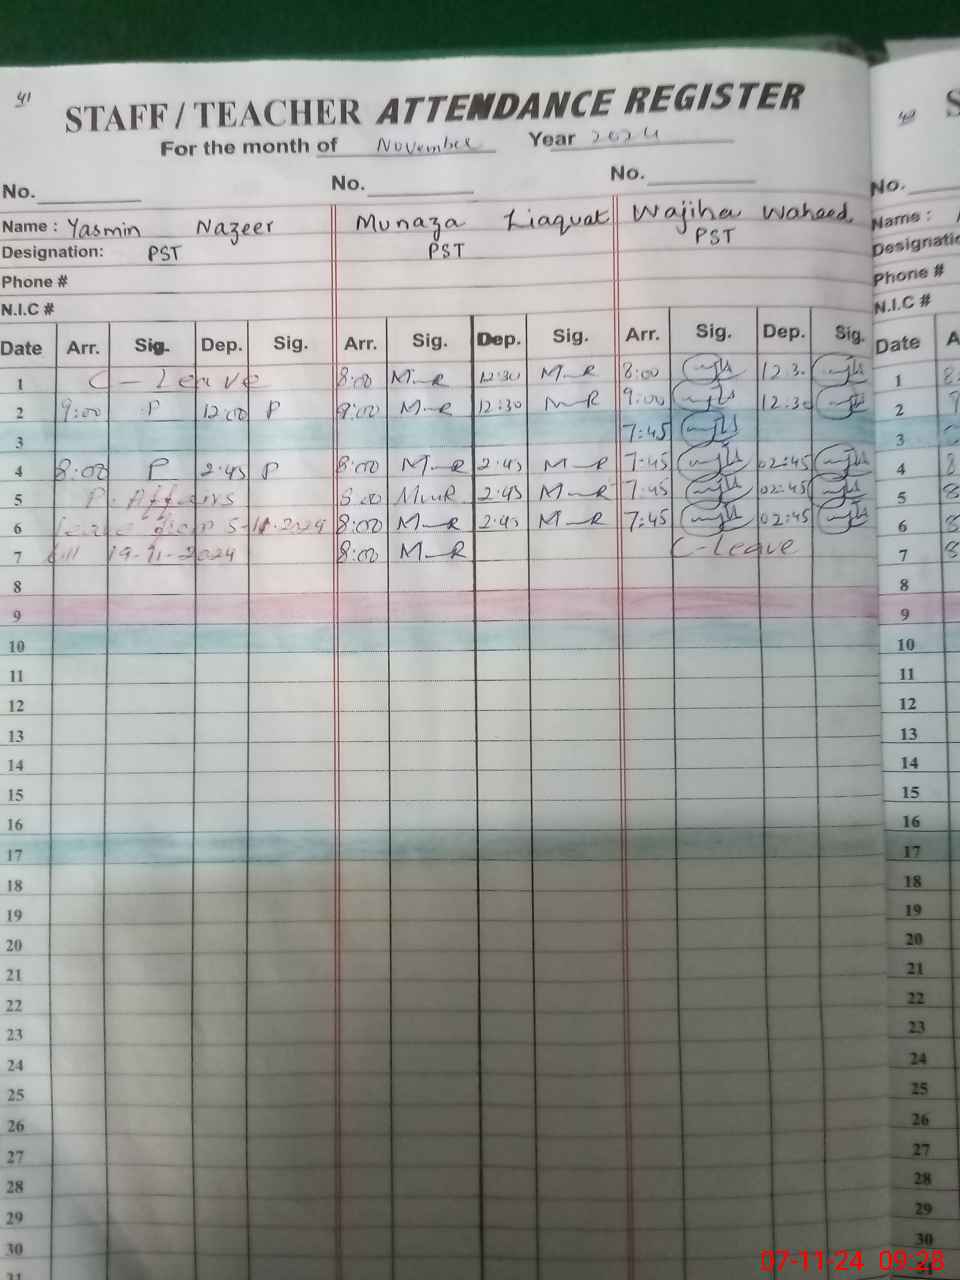 41
STAFF / TEACHER ATTENDANCE REGISTER
For the month of November Year 2024
No. No. No.
Name : Yasmin Nazeer Munaza Liaquat Wajiha Waheed
Designation: PST PST PST
Phone #
N.I.C #
Date Arr. Sig. Dep. Sig. Arr. Sig. Dep. Sig. Arr. Sig. Dep. Sig.
1 C-Leave 8:00 M-R 12:30 M-R 8:00 12:3
2 9:00 P 12:00 P 9:00 M-R 12:30 M-R 9:00 12:30
3 7:45
4 8:00 P 2:45 P 8:00 M-R 2:45 M-R 7:45 02:45
5 P. Affairs 8:00 M-R 2:45 M-R 7:45 02:45
6 leave from 5-11-2024 8:00 M-R 2:45 M-R 7:45 02:45
7 till 19-11-2024 8:00 M-R C-Leave
8
9
10
11
12
13
14
15
16
17
18
19
20
21
22
23
24
25
26
27
28
29
30
31
No.
Name :
Designatio
Phone #
N.I.C #
Date A
1
2
3
4
5
6
7
8
9
10
11
12
13
14
15
16
17
18
19
20
21
22
23
24
25
26
27
28
29
30
07-11-24 09:28